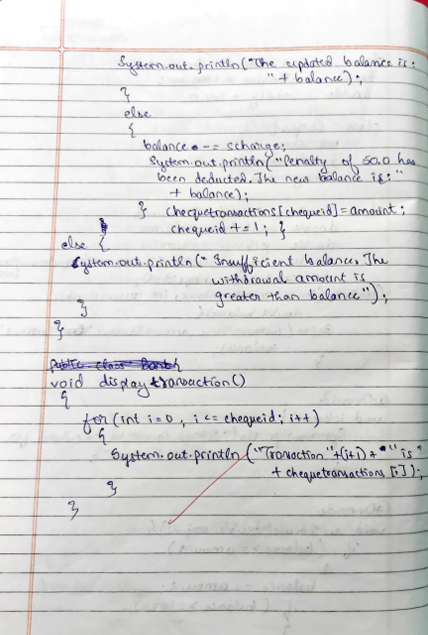 System.out.println("The updated balance is:
" + balance);
}
else
{
balance -= scharge;
System.out.println("Penalty of 50.0 has
been deducted. The new balance is:"
+ balance);
} chequetransactions[chequeid] = amount;
chequeid += 1; }
else {
System.out.println(" Insufficient balance. The
withdrawal amount is
greater than balance");
}
}
public class Bank
void display transaction()
{
for (int i=0, i <= chequeid; i++)
{
System.out.println ("Transaction "+(i+1) + " is"
+ chequetransactions [i]);
}
}